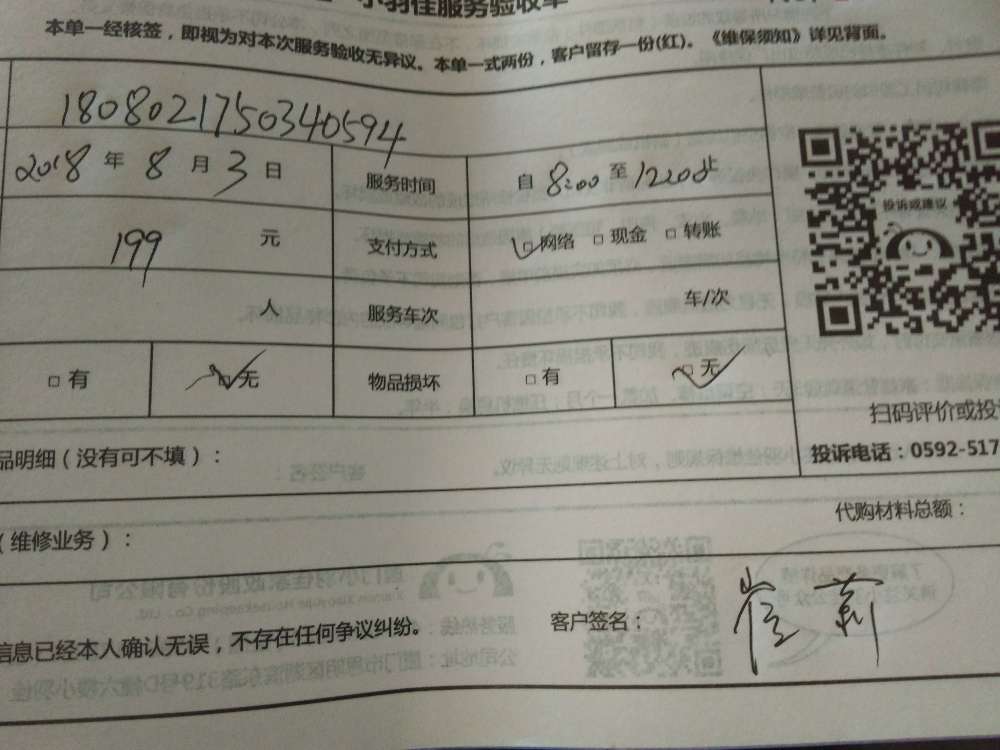 小羽佳服务验收单
本单一经核签，即视为对本次服务验收无异议。本单一式两份，客户留存一份(红)。《维保须知》详见背面。
1808021750340594
2018 年 8 月 3 日 服务时间 自 8:00 至 12:00 止
199 元 支付方式 □网络 □现金 □转账
人 服务车次 车/次
□有 □无 物品损坏 □有 □无
投诉或建议
扫码评价或投
品明细（没有可不填）： 投诉电话：0592-517
代购材料总额：
（维修业务）：
信息已经本人确认无误，不存在任何争议纠纷。 客户签名：